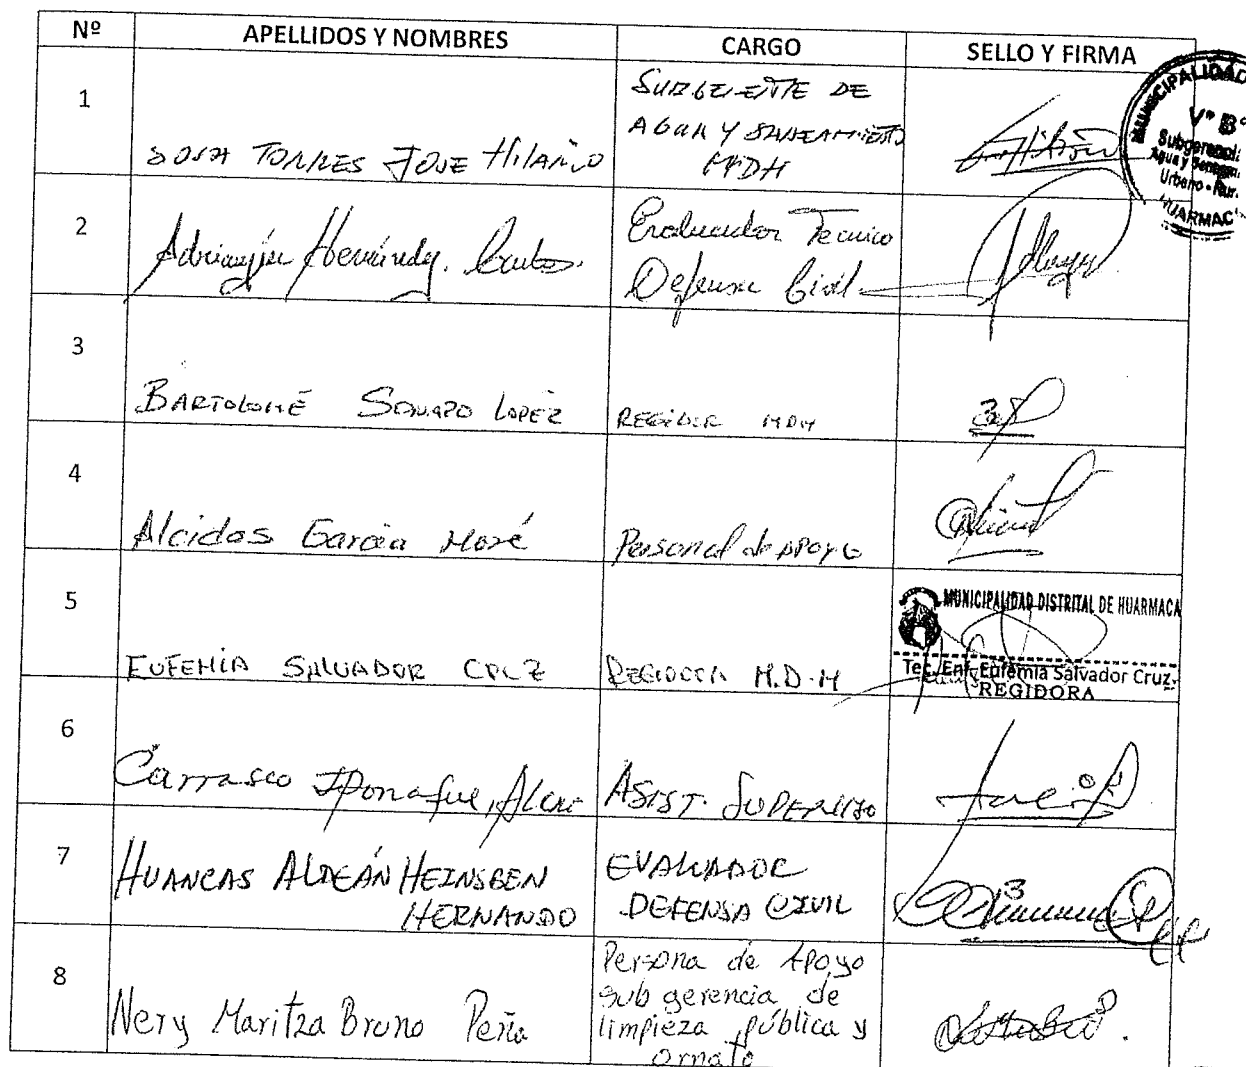 Nº APELLIDOS Y NOMBRES CARGO SELLO Y FIRMA
1
SOSA TORRES JOSE Hilario
SUBGERENTE DE
AGUA Y SANEAMIENTO
MDH
MUNICIPALIDAD
Vº Bº
Subgerencia
Agua y
Urbano - Rur.
HUARMAC
2
Adrianzén Hernández Carlos
Evaluador Tecnico
Defensa Civil
3
BARTOLOMÉ LOPEZ
REGIDOR MDH
4
Alcides Garcia Moré
Personal de APOYO
5
EUFEMIA SALVADOR CRUZ
REGIDORA M.D.H
MUNICIPALIDAD DISTRITAL DE HUARMACA
Tec. Enf. Eufemia Salvador Cruz
REGIDORA
6
Carrasco
ASIST. SUPERVISO
7
HUANCAS ALDEÁN HEINSBEN
HERNANDO
EVALUADOR
DEFENSA CIVIL
8
Nery Maritza Bruno Peña
Persona de Apoyo
sub gerencia de
limpieza pública y
ornato